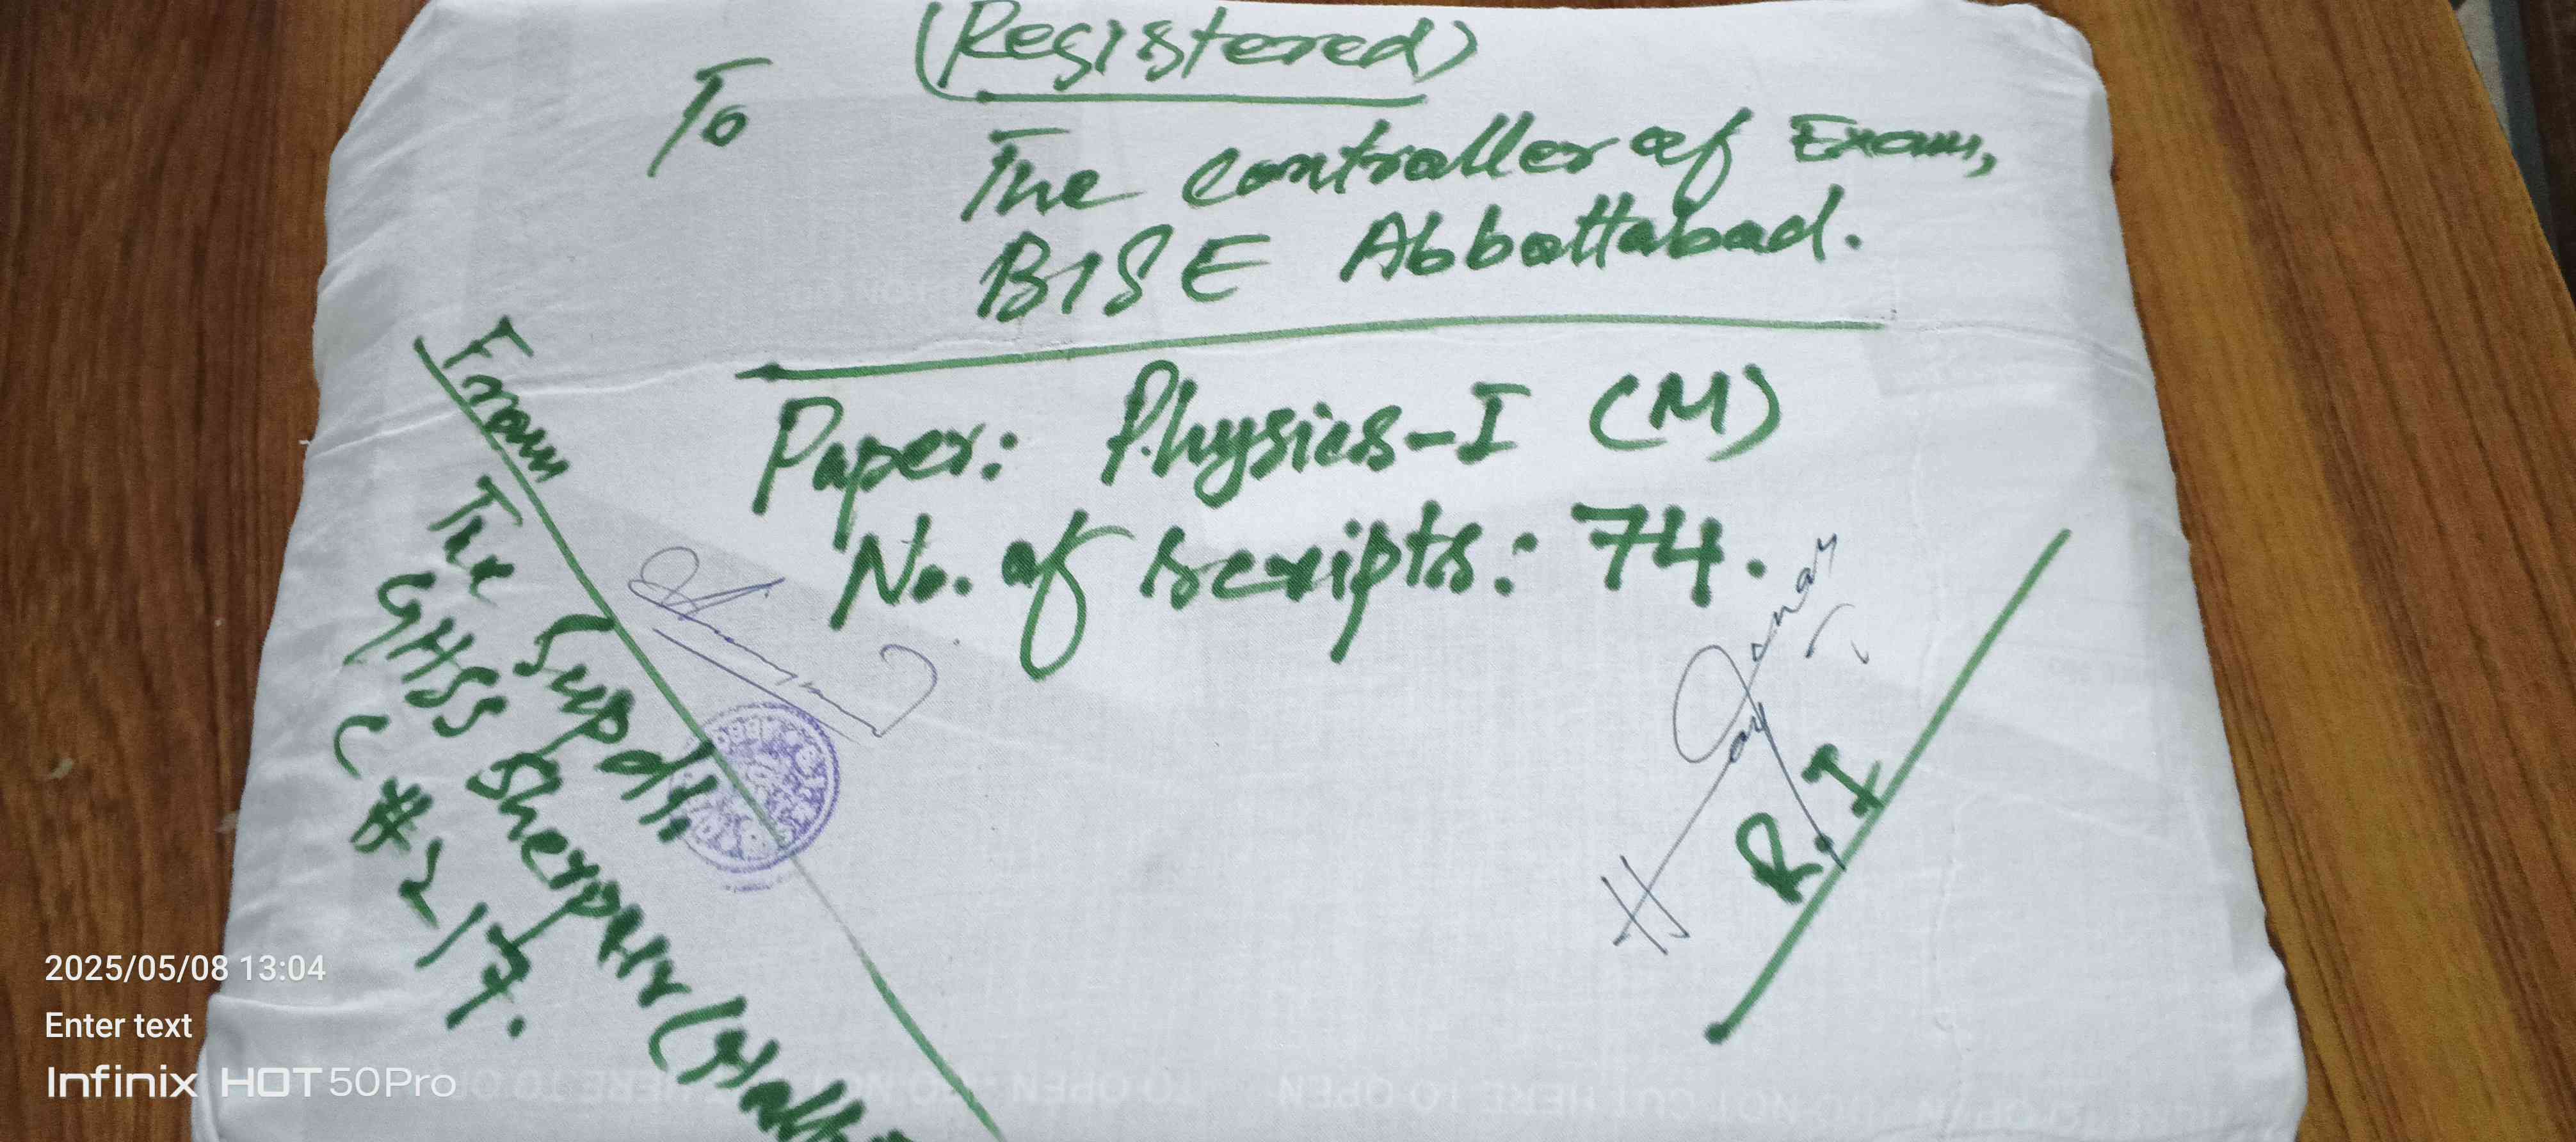 (Registered)
To
The controller of Exam,
BISE Abbottabad.
Paper: Physics-I (M)
No. of scripts: 74.
From
The Supdt:
GHSS Sherpur (Hall
C # 217.
R.I
2025/05/08 13:04
Enter text
Infinix HOT 50Pro
TO OPEN
CUT HERE TO OPEN